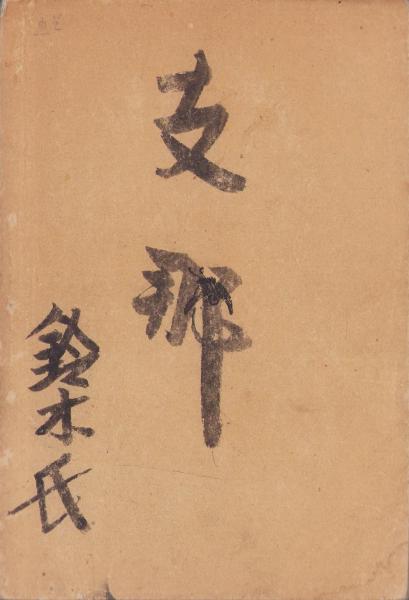 支那
鈴木氏